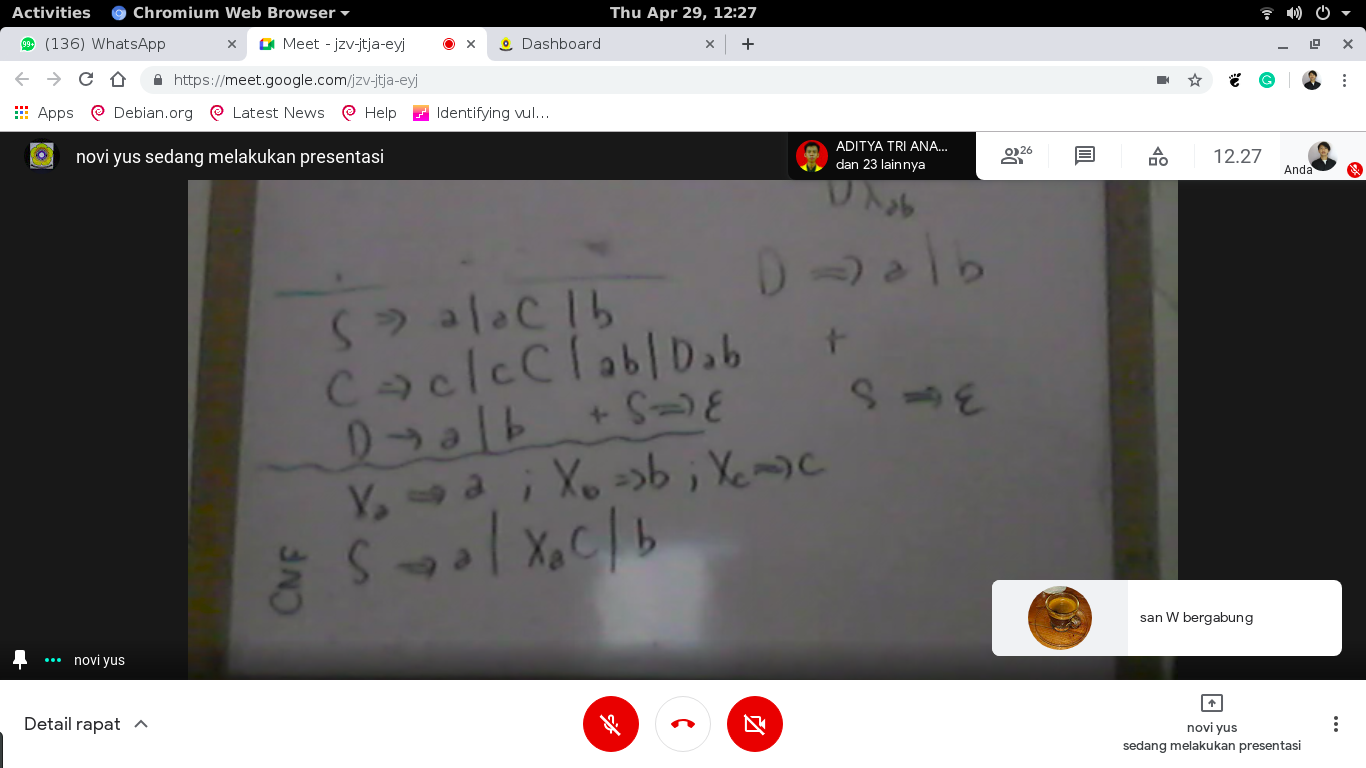 Activities Chromium Web Browser Thu Apr 29, 12:27
(136) WhatsApp Meet - jzv-jtja-eyj Dashboard
https://meet.google.com/jzv-jtja-eyj
Apps Debian.org Latest News Help Identifying vul...
novi yus sedang melakukan presentasi
ADITYA TRI ANA...
dan 23 lainnya
26
12.27
Anda
D X_ab
D ⇒ a | b
+
S ⇒ ε
S ⇒ a | aC | b
C ⇒ c | cC | ab | Dab
D → a | b + S ⇒ ε
X_a ⇒ a ; X_b ⇒ b ; X_c ⇒ c
CNF
S ⇒ a | X_a C | b
san W bergabung
novi yus
Detail rapat
novi yus
sedang melakukan presentasi